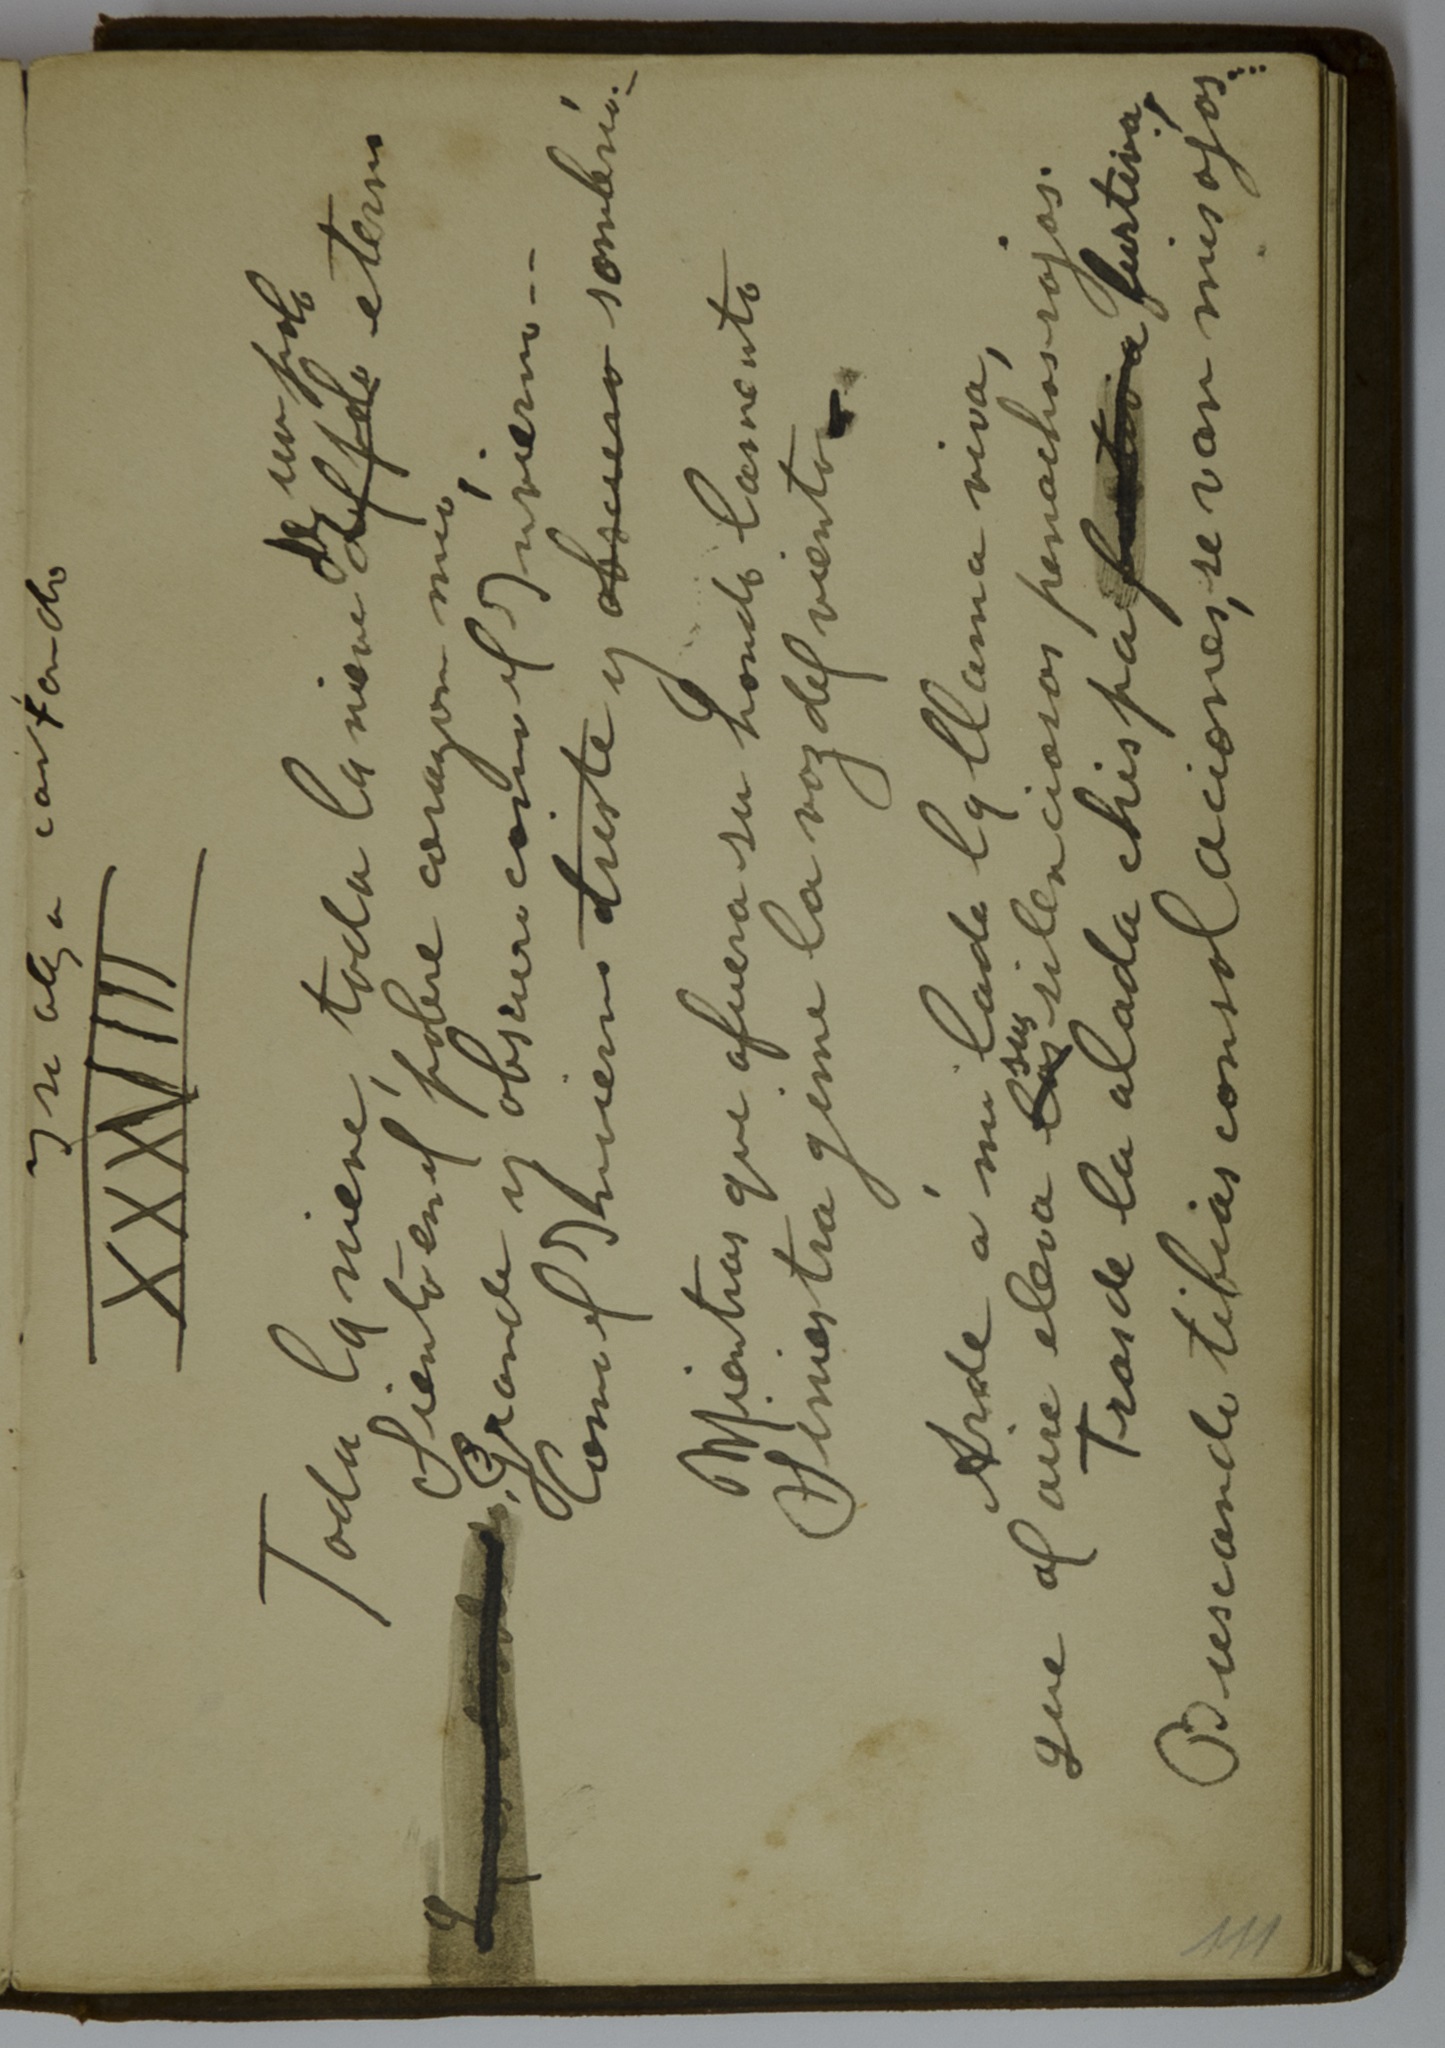 y se alza cantando
XXXVIII
De un polo
Toda la nieve, toda la nieve del polo eterno
Siento en el pobre corazon mio;
Grande y obscuro como el Invierno--
Como el Invierno triste y obscuro sombrío.-
Mientras que afuera su hondo lamento
Siniestra gime la voz del viento.
Arde á mi lado la llama viva,
sus
que al aire eleva los silenciosos penachos rojos.
Tras de la alada chispa furtiva furtiva,
Buscando tibias consolaciones, se van mis ojos
111